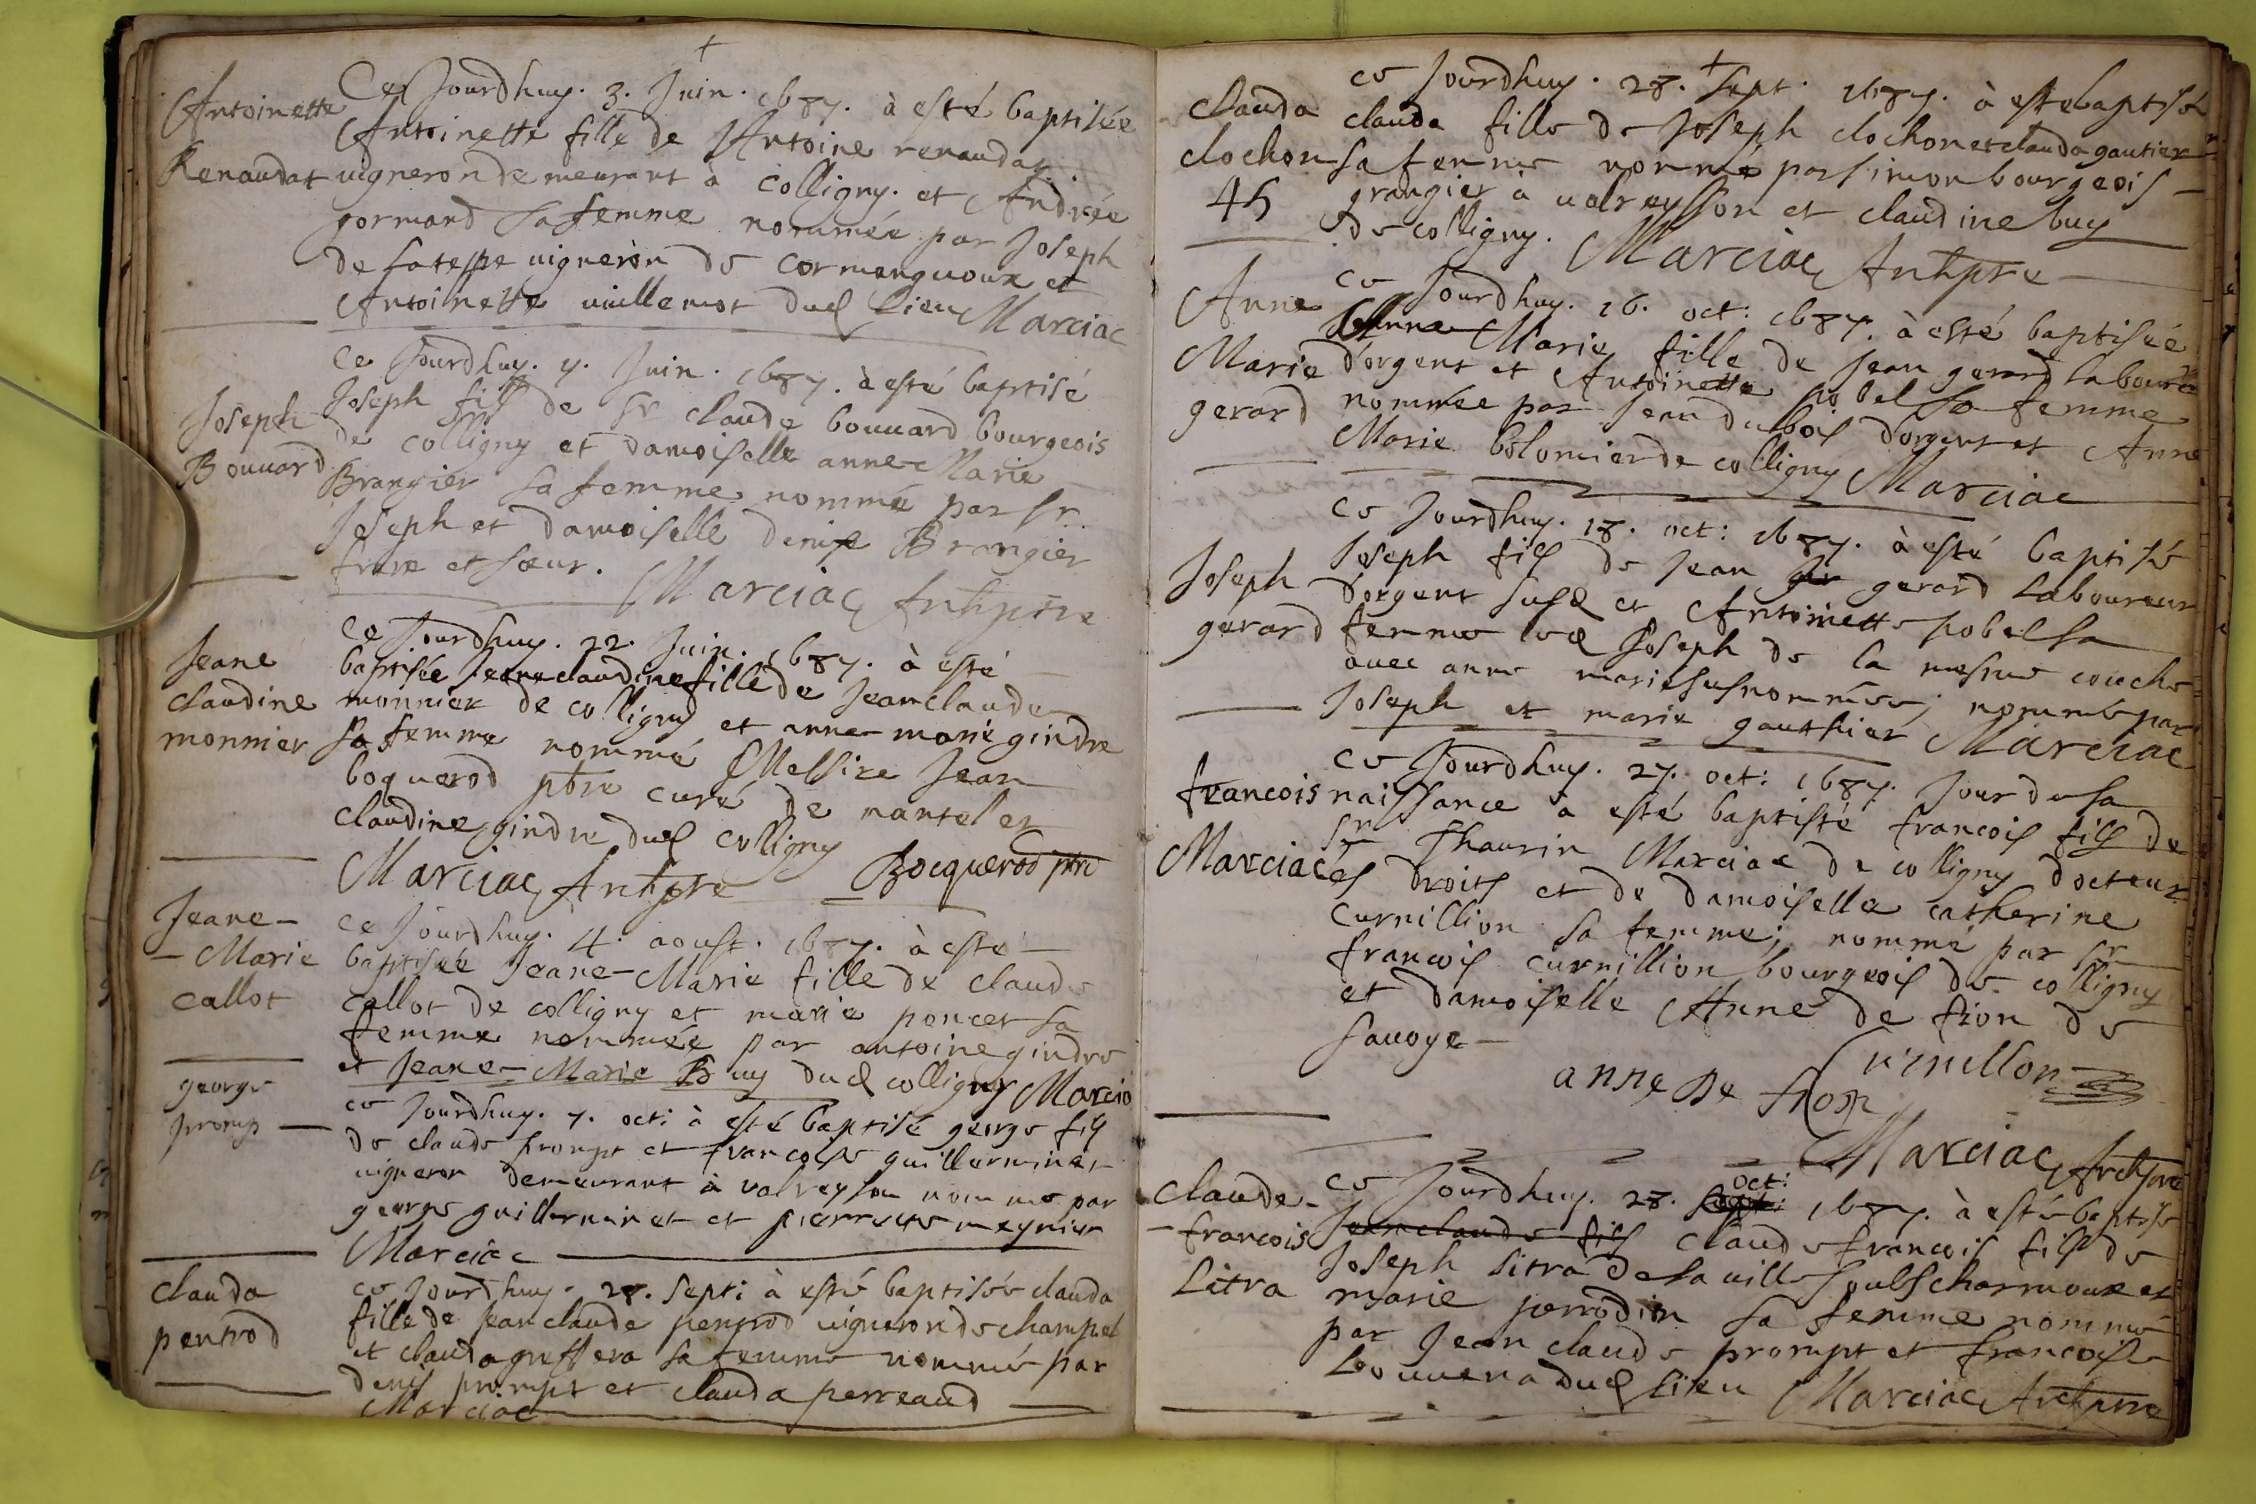 Antoinette
Renaudat
Ce Jourdhuy. 3. Juin. 1687. à esté baptisée
Antoinette fille de Antoine renaudat
uigneron demeurant à colligny. et Andrée
gormand sa femme nommée par Joseph
de la teppe uigneron de cormangoux et
Antoinette uuillemot dud lieu Marciac
Joseph
Bouuard
Ce Jourdhuy. 7. Juin. 1687. à esté baptisé
Joseph fils de Sr claude bouuard bourgeois
de colligny et damoiselle anne Marie
Brangier sa femme nommé par Sr.
Joseph et damoiselle denise Brangier
frere et sœur.
Marciac Archpre
Jeane
claudine
monnier
Ce Jourdhuy. 22. Juin. 1687. à esté
baptisée Jeane claudine fille de Jean claude
monnier de colligny et anne marie gindre
sa femme nommé Messire Jean
boquerod pbre curé de nantel et
claudine gindre dud colligny
Marciac Archpre Bocquerod ptre
Jeane-
- Marie
callot
ce Jourdhuy. 4. aoust. 1687. à esté
baptisée Jeane-Marie fille de claude
callot de colligny et marie poncet sa
femme nommée par antoine gindre
et Jeane-Marie Buy dud colligny Marcia
george
promp
ce Jourdhuy. 7. oct: à esté baptisé george fils
de claude prompt et francoise guillerminet
uigneron demeurant à valreysson nommé par
george guillerminet et pierrette meynier
Marciac
clauda
penrod
ce Jourdhuy. 28. Sept: à esté baptisée clauda
fille de Jean claude penrod uigneron de champel
et clauda greffera sa femme nommée par
denis prompt et clauda perreaud
Marciac
clauda
clochon
45
ce Jourdhuy. 28. Sept. 1687. à este baptisé
clauda fille de Joseph clochon et clauda gautier
sa femme nommé par simon bourgeois
grangier à valreysson et claudine buy
de colligny. Marciac Archpre
Anne
Marie
gerard
ce Jourdhuy. 16. oct: 1687. à esté baptisée
Anne Marie fille de Jean gerard laboureur
dorgent et Antoinette pobel sa femme
nommée par Jean dubois dorgent et Anne
Marie bolomier de colligny Marciac
Joseph
gerard
ce Jourdhuy. 18. oct: 1687. à esté baptisé
Joseph fils de Jean ger gerard Laboureur
dorgent susd et Antoinette pobel sa
femme led Joseph de la mesme couche
auec anne marie susnommée; nommé par
Joseph et marie gauthier Marciac
francois
Marciac
ce Jourdhuy. 27. oct: 1687. Jour de sa
naissance a esté baptisté francois fils de
Sr Thaurin Marciac de colligny docteur
és droits et de damoiselle catherine
curnillion sa femme; nommé par Sr
francois curnillion bourgeois de colligny
et damoiselle Anne de fion de
sauoye-
Curnillon
anne de
Marciac Archpre
claude-
- francois
Litra
ce Jourdhuy. 28. Sept: oct: 1687. à esté baptisé
Jean claude fils claude francois fils de
Joseph litra de la uille soubs charmoux et
marie perrodin sa femme nommé
par Jean claude prompt et francoise
bouuera dud lieu Marciac Archpre